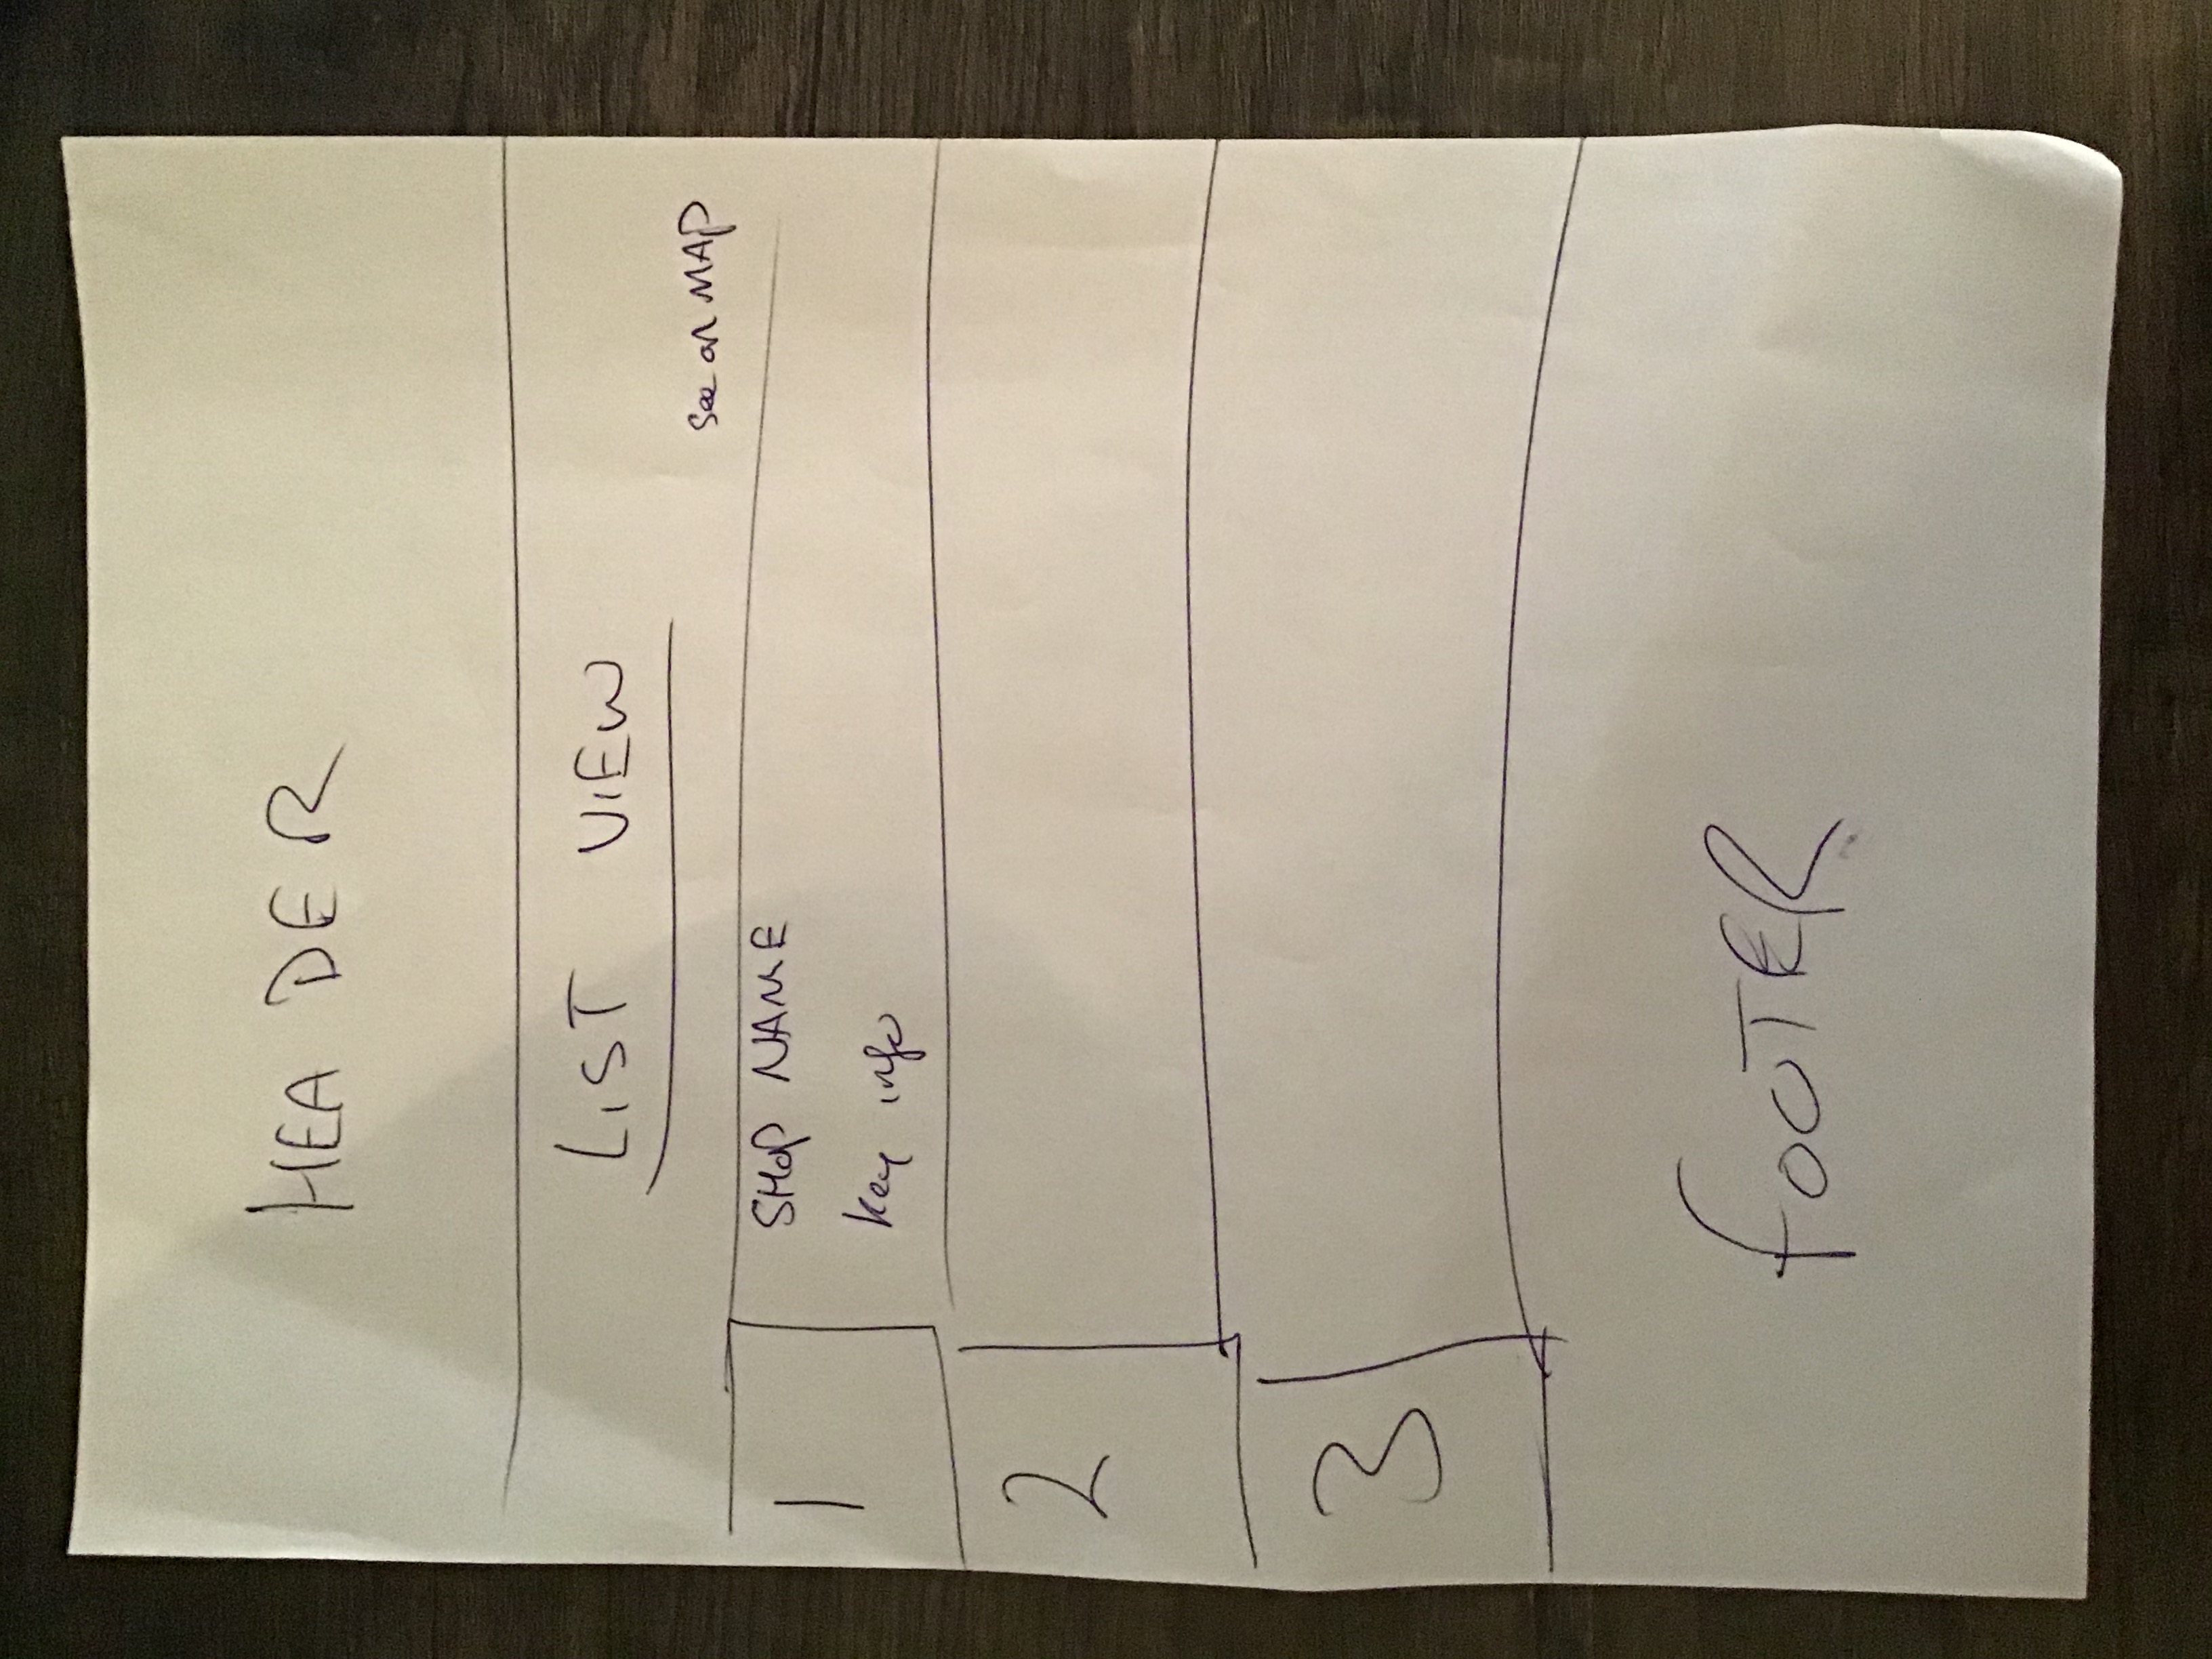 HEADER
LIST VIEW
See on MAP
1
SHOP NAME
Key info
2
3
FOOTER